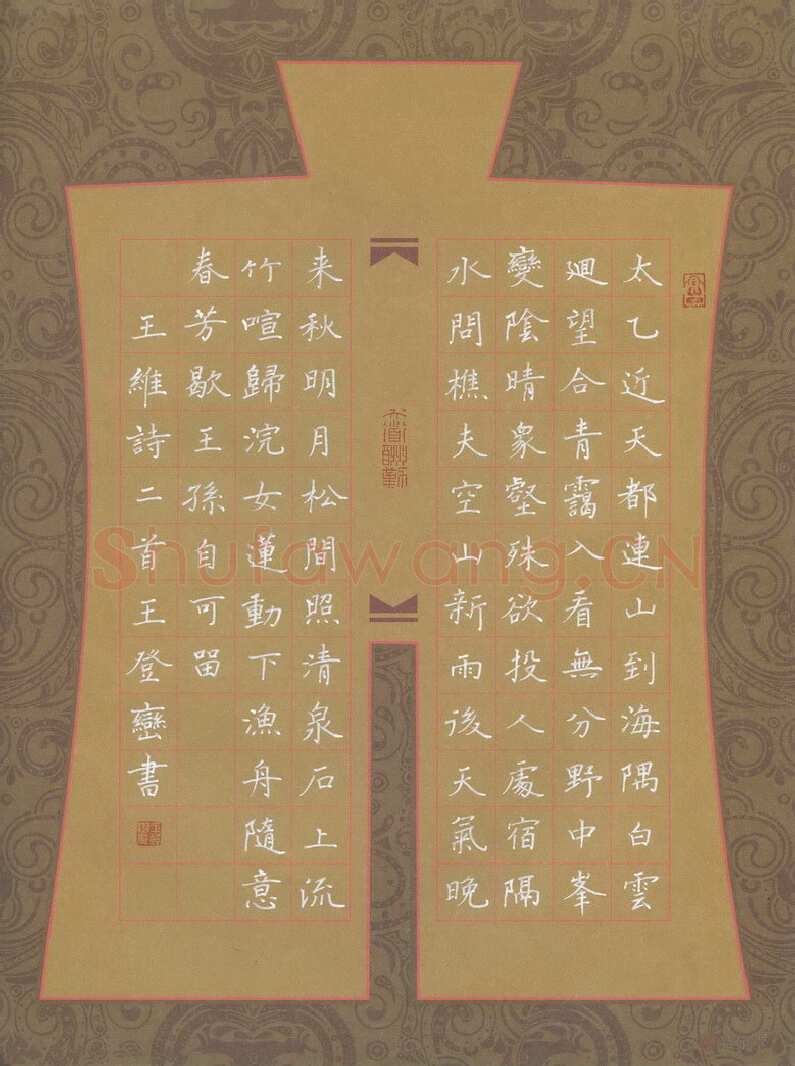 太乙近天都連山到海隅白雲
廻望合青靄入看無分野中峯
變陰晴衆壑殊欲投人處宿隔
水問樵夫空山新雨後天氣晚
天道酬勤
来秋明月松間照清泉石上流
竹喧歸浣女蓮動下漁舟隨意
春芳歇王孫自可留
王維詩二首王登巒書
Shufawang.CN